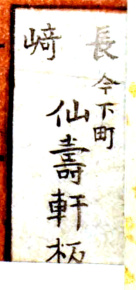 長崎
今下町
仙壽軒板